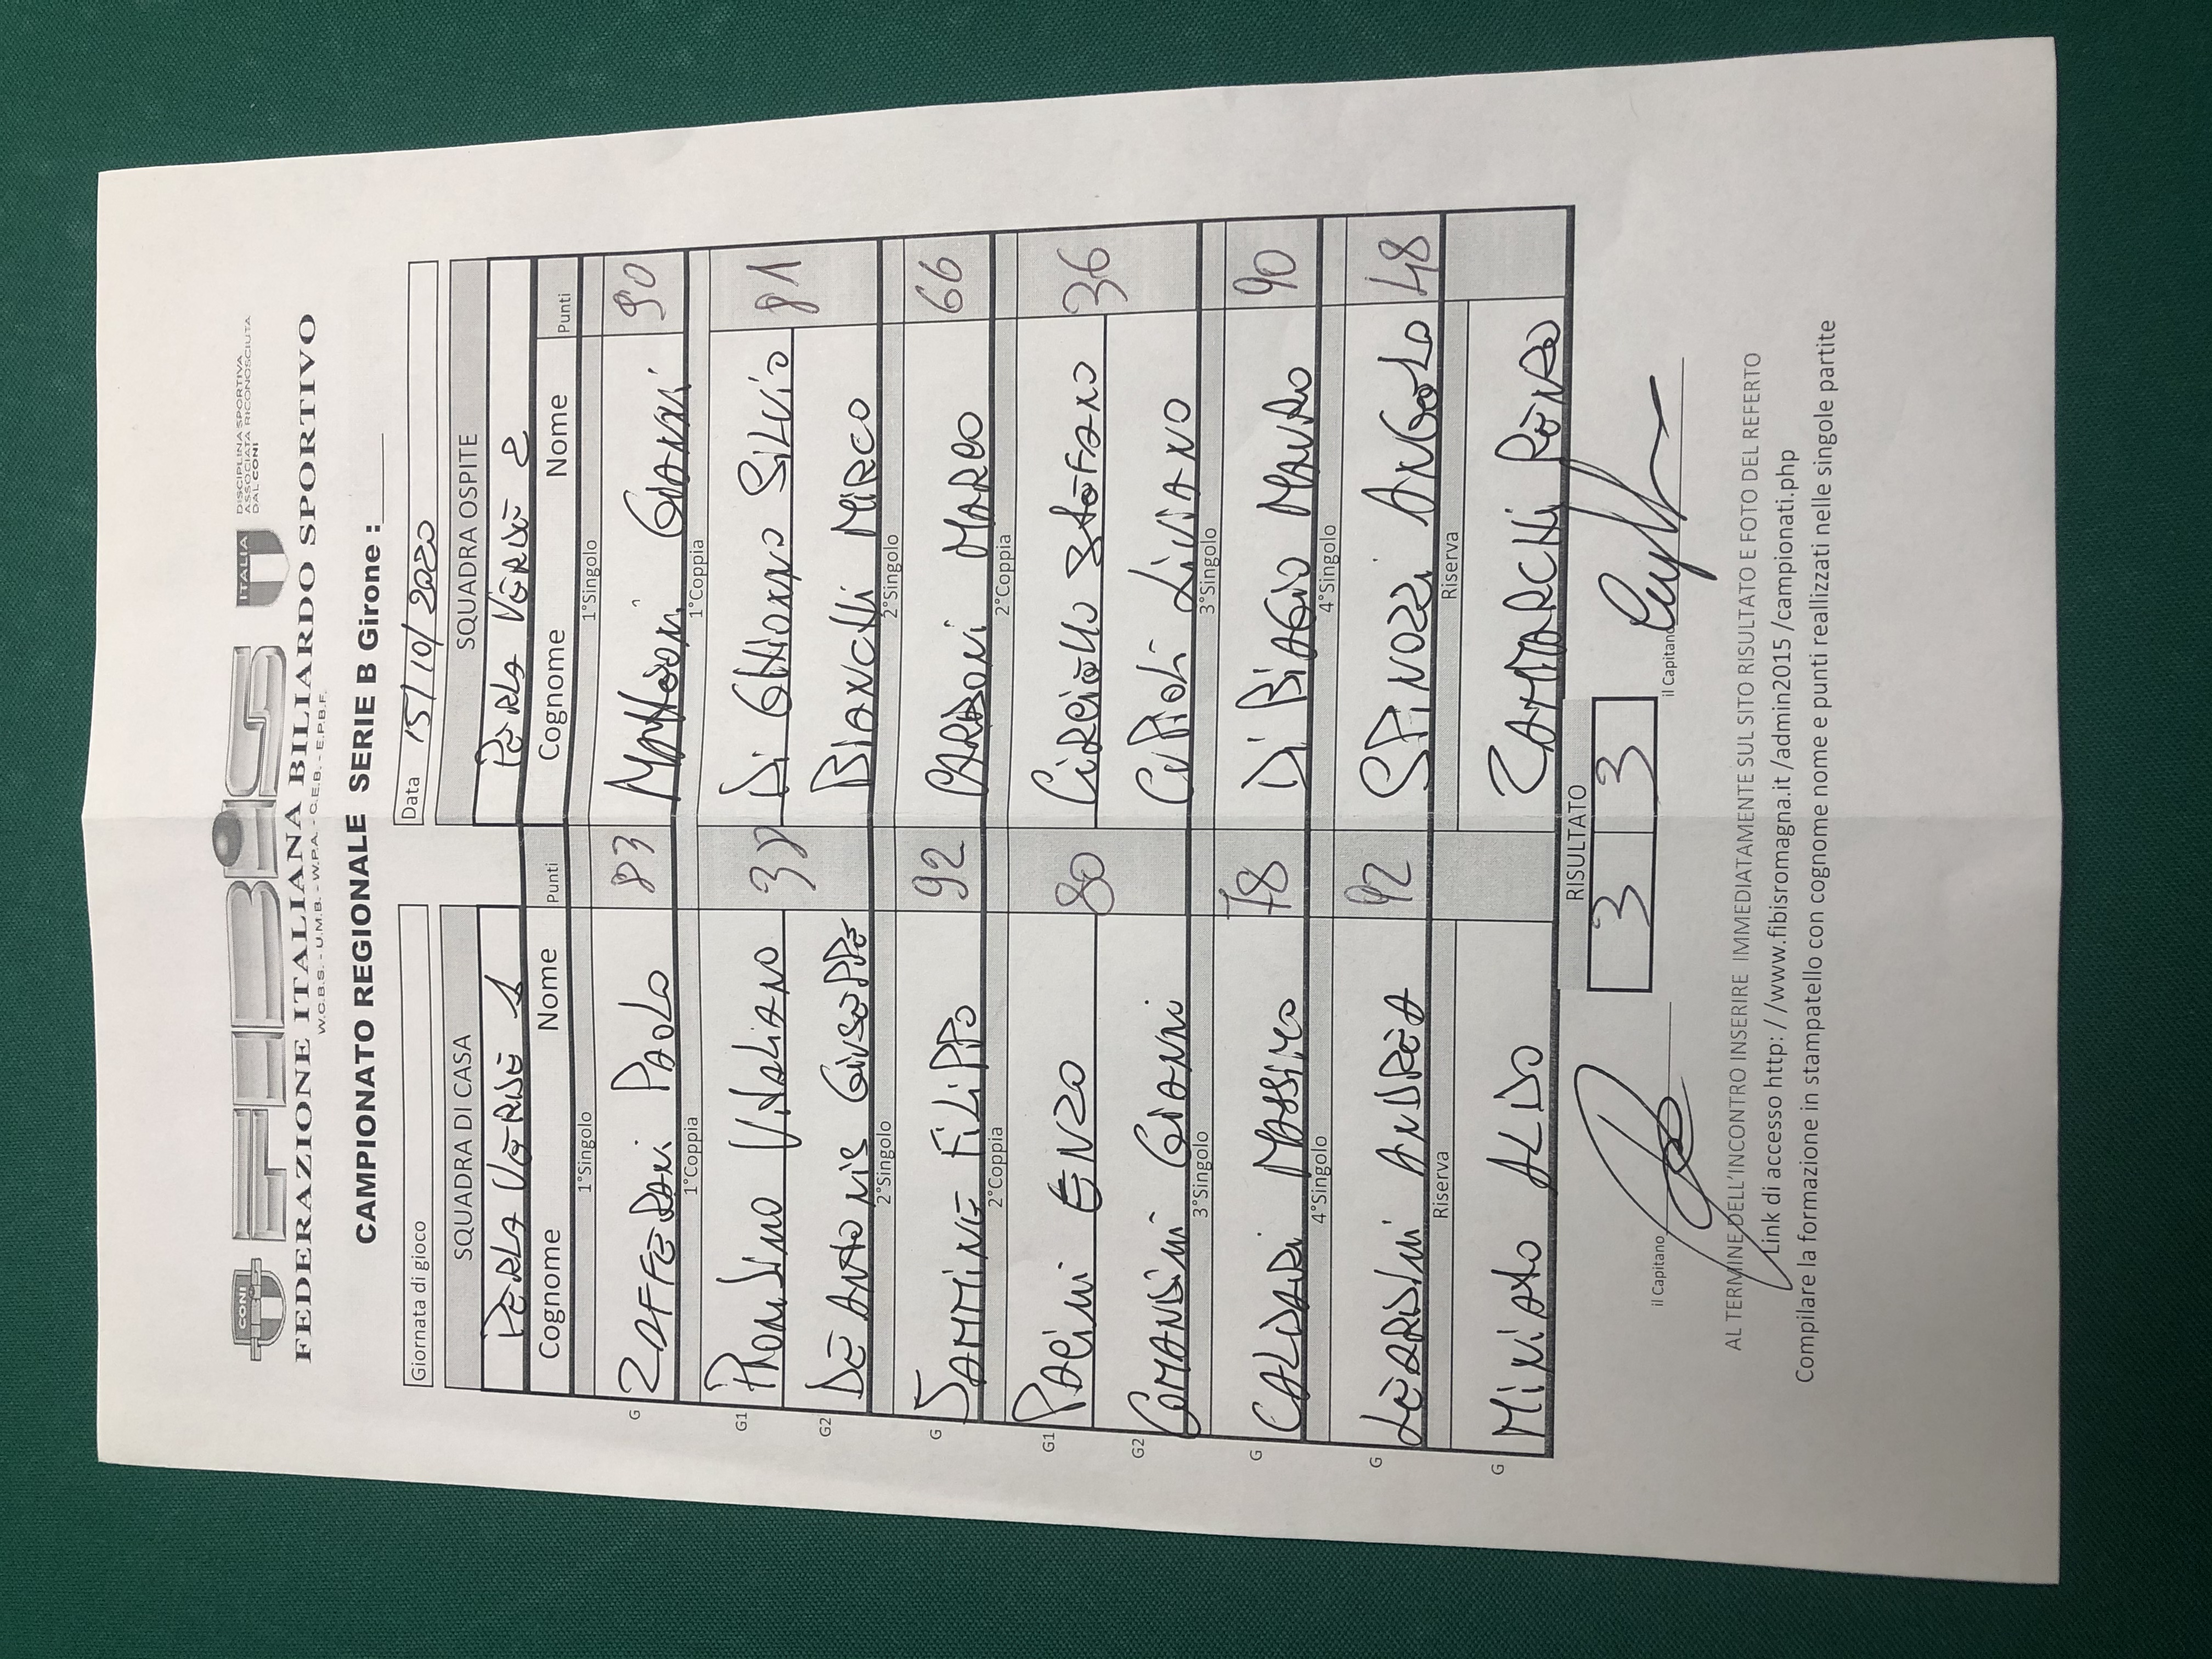 CONI
FIBiS
ITALIA
DISCIPLINA SPORTIVA
ASSOCIATA RICONOSCIUTA
DAL CONI
FEDERAZIONE ITALIANA BILIARDO SPORTIVO
W.C.B.S. - U.M.B.- W.P.A. - C.E.B. - E.P.B.F.
CAMPIONATO REGIONALE SERIE B Girone :
Giornata di gioco
Data 15/10/2020
SQUADRA DI CASA SQUADRA OSPITE
PERLA VERDE 1 PERLA VERDE 2
Cognome Nome Punti Cognome Nome Punti
1°Singolo 1°Singolo
G ZAFFERANI PAOLO 83 MAttEoni GIANNI 90
1°Coppia 1°Coppia
G1 VitALIANO 38 Di GHIONNO SILVIO 81
G2 DE ANtONIS GIUSEPPE BIANCHI MIRCO
2°Singolo 2°Singolo
G IAMMINE FILIPPO 92 CARDONI MARCO 66
2°Coppia 2°Coppia
G1 PACINI ENZO 80 CiRCiELLO StEFANO 36
G2 COMANDINI GIANNI CUPIOLI LIVIANO
3°Singolo 3°Singolo
G CALDARI MASSIMO 78 Di BIAGIO MAURO 90
4°Singolo 4°Singolo
G LEARDINI ANDREA 92 SPINOZZI ANGELO 48
Riserva Riserva
G MINIAtO ALDO ZAMMARCHI RENZO
RISULTATO
3 3
il Capitano il Capitano
AL TERMINE DELL'INCONTRO INSERIRE IMMEDIATAMENTE SUL SITO RISULTATO E FOTO DEL REFERTO
Link di accesso http: / /www.fibisromagna.it /admin2015 /campionati.php
Compilare la formazione in stampatello con cognome nome e punti reallizzati nelle singole partite